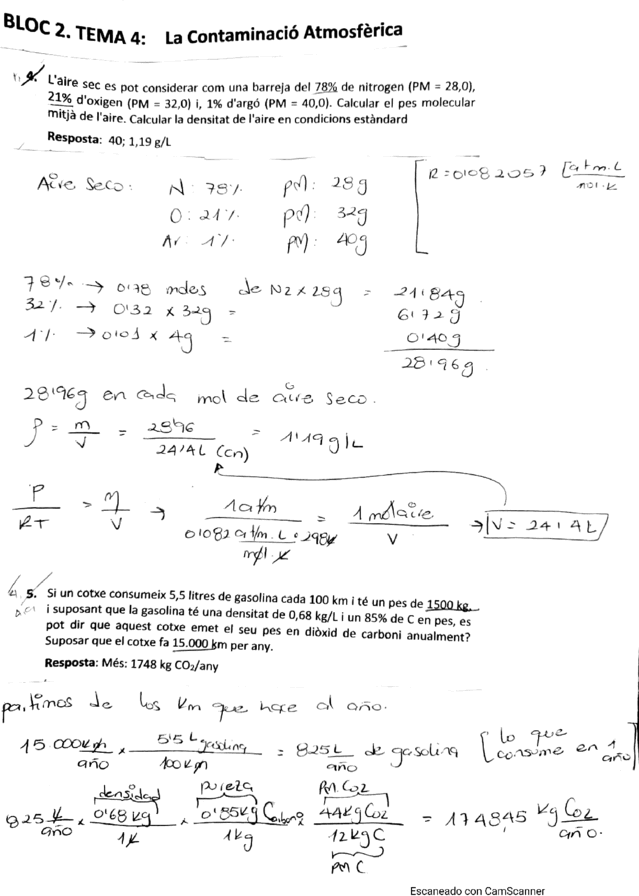 BLOC 2. TEMA 4: La Contaminació Atmosfèrica
4. L'aire sec es pot considerar com una barreja del 78% de nitrogen (PM = 28,0),
21% d'oxigen (PM = 32,0) i, 1% d'argó (PM = 40,0). Calcular el pes molecular
mitjà de l'aire. Calcular la densitat de l'aire en condicions estàndard
Resposta: 40; 1,19 g/L
Aire seco: N: 78% PM: 28g [R=0'082057 [atm·L / mol·K
O: 21% PM: 32g
Ar: 1% PM: 40g
78% → 0'78 moles de N2 x 28g = 21'84g
32% → 0'32 x 32g = 6'72g
1% → 0'01 x 4g = 0'40g
28'96g
28'96g en cada mol de aire seco.
ρ = m/V = 28'96 / 24'4L (cn) = 1'19 g/L
P/RT = n/V → 1atm / 0'082 atm·L/mol·K · 298K = 1 mol aire / V → V = 24'4L
5. Si un cotxe consumeix 5,5 litres de gasolina cada 100 km i té un pes de 1500 kg,
i suposant que la gasolina té una densitat de 0,68 kg/L i un 85% de C en pes, es
pot dir que aquest cotxe emet el seu pes en diòxid de carboni anualment?
Suposar que el cotxe fa 15.000 km per any.
Resposta: Més: 1748 kg CO₂/any
partimos de los km que hace al año.
15.000 km/año x 5'5 L gasolina / 100 km = 825 L/año de gasolina [lo que consume en 1 año]
densidad pureza PM. CO2
825 L/año x 0'68 kg / 1L x 0'85 kg Carbono / 1kg x 44 kg CO2 / 12 kg C = 1748'45 kg CO2/año.
PM C
Escaneado con CamScanner